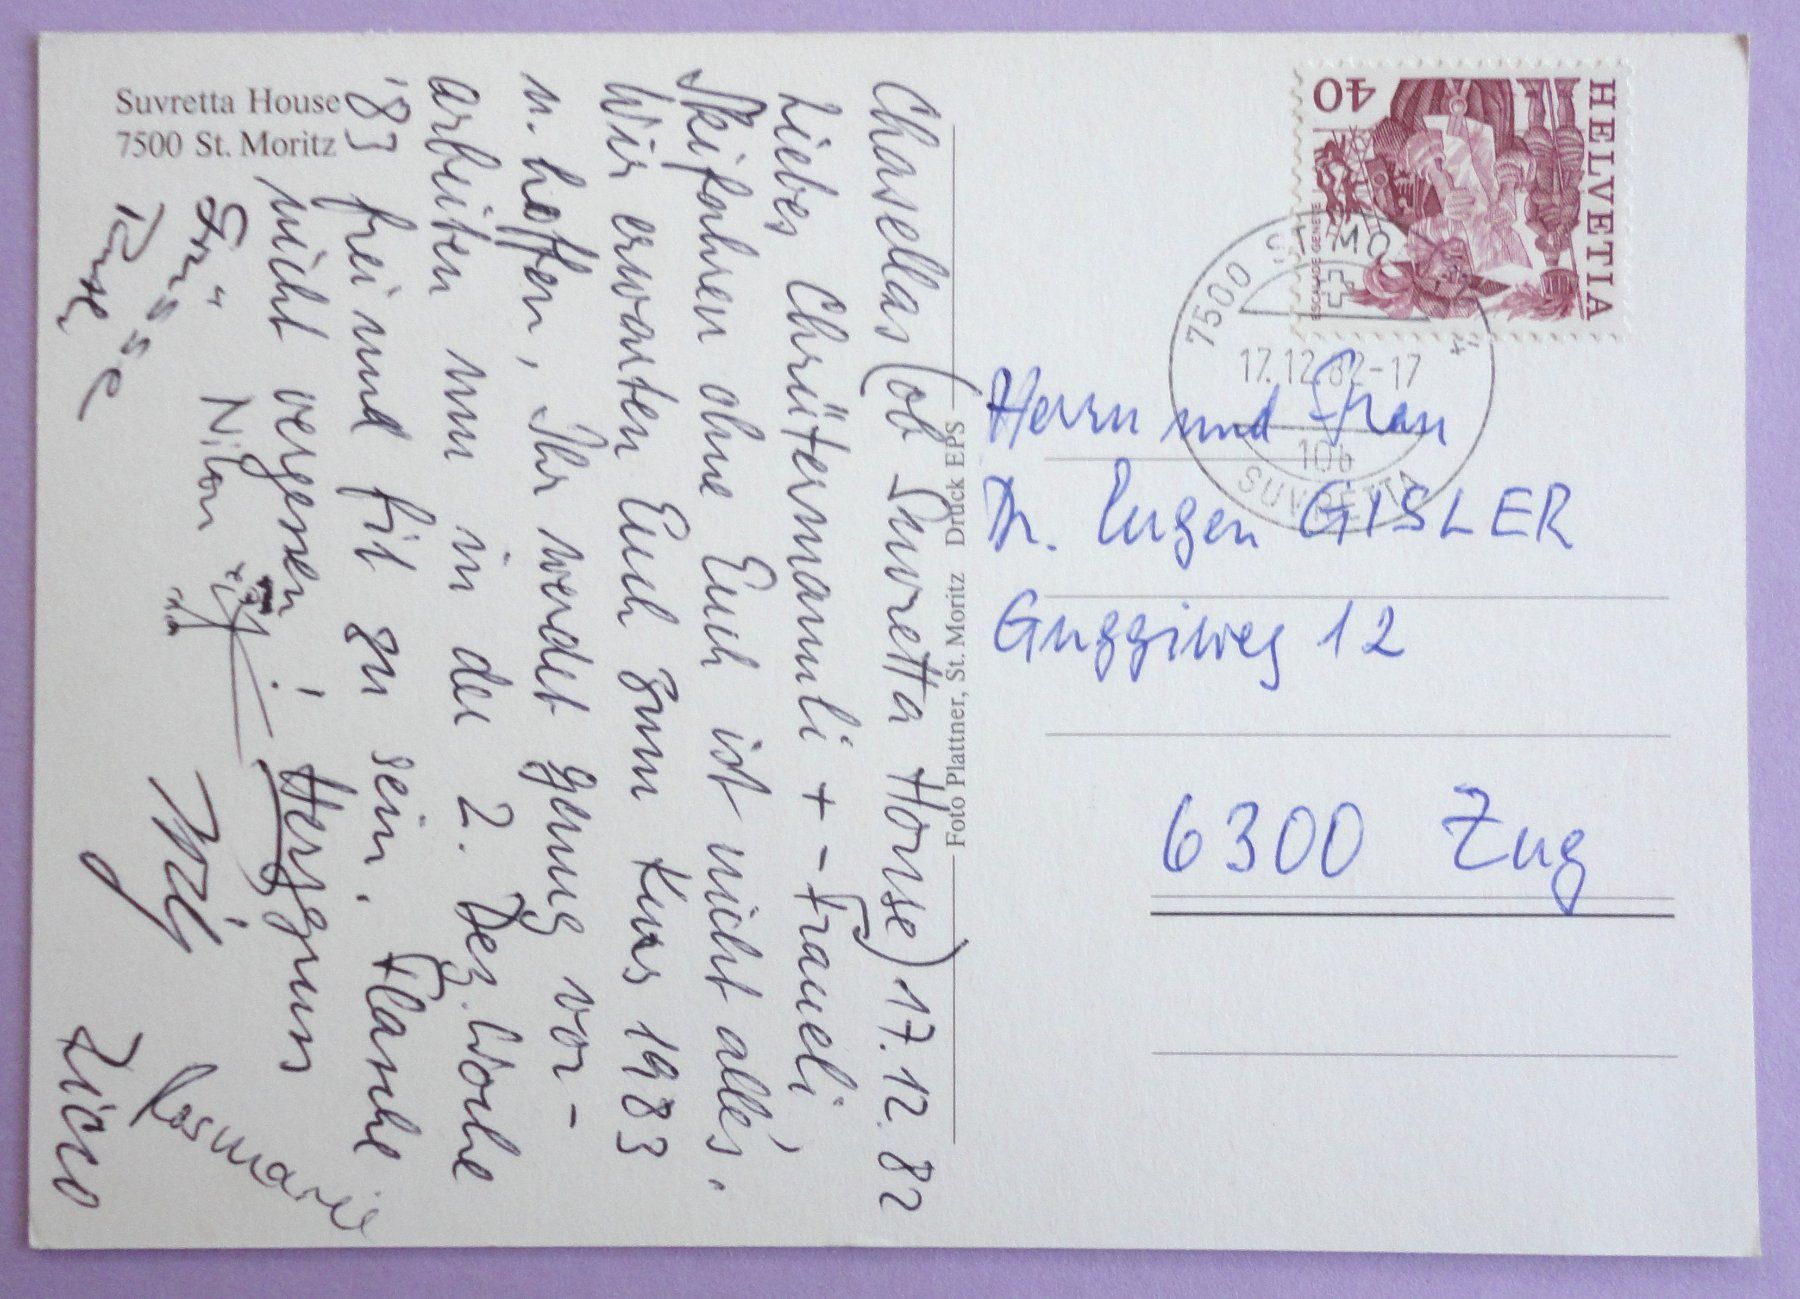 Suvretta House
7500 St. Moritz
Chasellas (ob Suvretta House) 17.12.82
Liebes Chrütermannli + - Fraueli,
Skifahren ohne Euch ist nicht alles.
Wir erwarten Euch zum Kurs 1983
u. hoffen, Ihr werdet genug vor-
arbeiten um in der 2. Dez. Woche
'83 frei und fit zu sein. Flasche
nicht vergessen! Herzgruss
Grüsse
Rosmarie
Zicco
Foto Plattner, St. Moritz Druck EPS
HELVETIA
40
ESCALADE GENEVE
7500 ST. MO
17.12.82-17
106
SUVRETTA
Herrn und Frau
Dr. Eugen GISLER
Guggiweg 12
6300 Zug